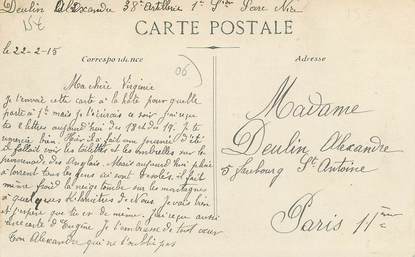 Deulin Alexandre 38e Artillerie 1re Son Parc Nice
15€
CARTE POSTALE
le 22-2-15
Correspondance
Adresse
06
Ma chère Virginie
Je t'envoie cette carte à la hâte pour quelle
parte à 1h mais je t'écrirais ce soir j'ai reçu
tes 2 lettres aujourd'hui des 18 et 19. Je te
remercie bien. Hier il a fait une journée d'été
il fallait voir les toilettes et les ombrelles sur la
promenade des Anglais. Mais aujourd'hui pluie
à torrent tous les gens ici sont désolés, il fait
même froid la neige tombe sur les montagnes
à quelques Kilomètres de Nous. Je vais bien
et j'espère que toi de même. j'ai reçu aussi
une carte d'Eugène. Je t'embrasse de tout cœur
Ton Alexandre qui ne t'oublie pas
Madame
Deulin Alexandre
5 faubourg St Antoine
Paris 11ème